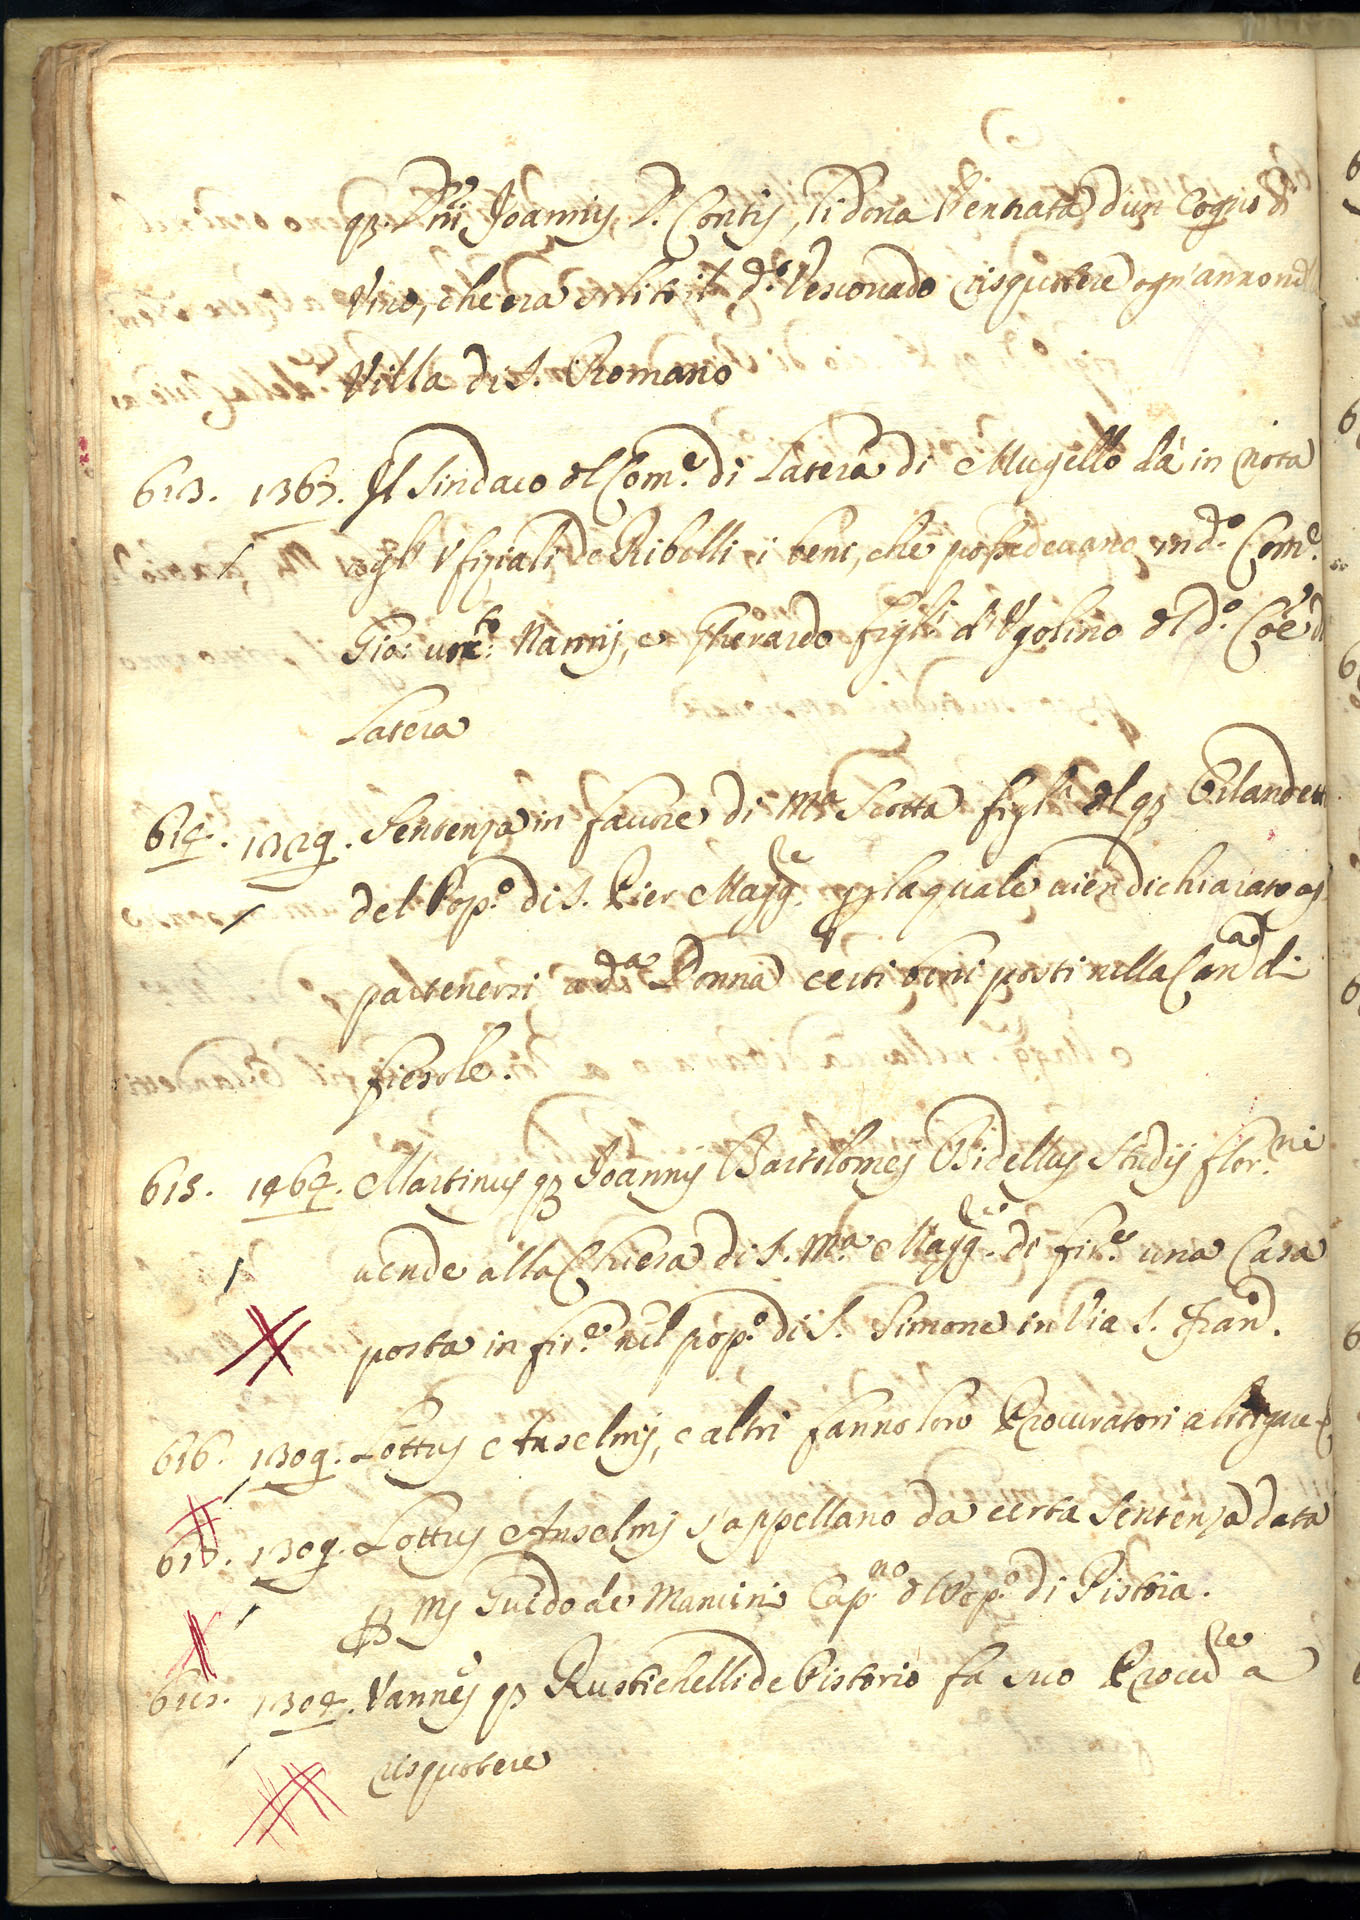 qz. Dni Joannis, D. Contis, li dona l'entrata d'un Cogno di
Vino, che era solito il d.º Vescovado risquotere ogn'anno nel
Villa di S. Romano
613. 1367. Il Sindaco del Com.e di Latera di Mugello dà in nota
agl'Ufiziali de Ribelli i beni, che possedevano in d.º Com.e
Gio: voc.to Nannis, e Gherardo figl.i d'Ugolino del d.º Coe di
Latera
614. 1329. Sentenza in favore di M.a Scotta figl.a del qz Orlandetti
del Pop.º di S. Pier Magg.re p laquale vien dichiarato ap
partenersi a d.a Donna certi beni posti nella Can.a di
fiesole.
615. 1464. Martinus qz Joannis Bartolomej Bidellus Studij flor.ni
vende alla Chiesa di S. M.a Magg.re di fir.e una Casa
posta in fir.e nel pop.º di S. Simone in Via S. Fran.º
616. 1309. Lottus Anselmj, e altri fanno loro Procuratori a litigare
617. 1309. Lottus Anselmj s'appellano da certa Sentenza data
p Mſ Guido de Mancini Cap.no del Pop.º di Pistoia.
618. 1304. Vannes qz Rustichelli de Pistorio fa suo Procu.re a
risquotere